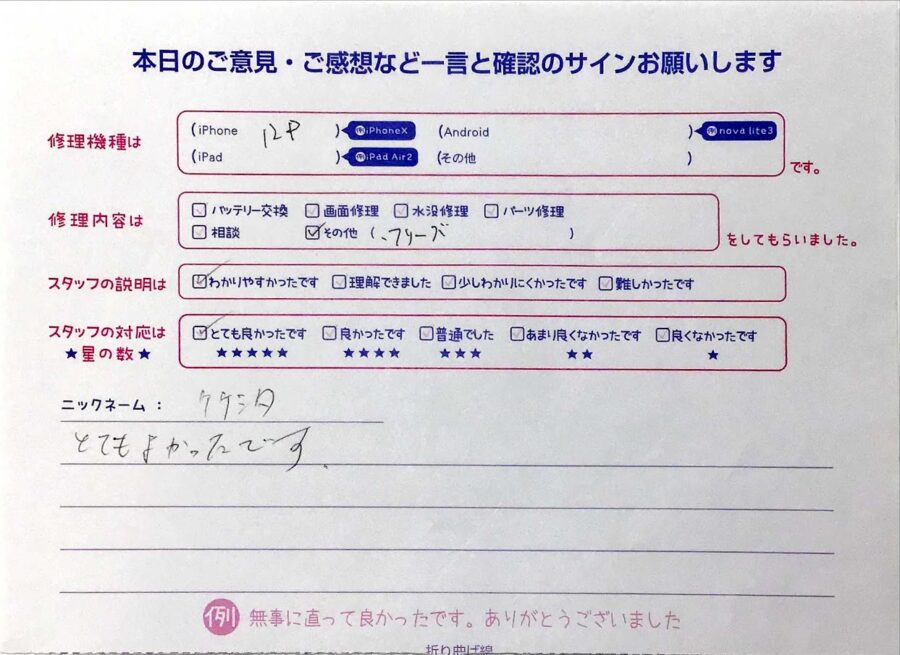 本日のご意見・ご感想など一言と確認のサインお願いします
修理機種は (iPhone 12P ) 例iPhoneX (Android ) 例nova lite3
(iPad ) 例iPad Air2 (その他 ) です。
修理内容は バッテリー交換 画面修理 水没修理 パーツ修理
相談 その他 ( フリーズ ) をしてもらいました。
スタッフの説明は わかりやすかったです 理解できました 少しわかりにくかったです 難しかったです
スタッフの対応は とても良かったです 良かったです 普通でした あまり良くなかったです 良くなかったです
★星の数★ ★★★★★ ★★★★ ★★★ ★★ ★
ニックネーム：
とてもよかったです.
例 無事に直って良かったです。ありがとうございました
折り曲げ線